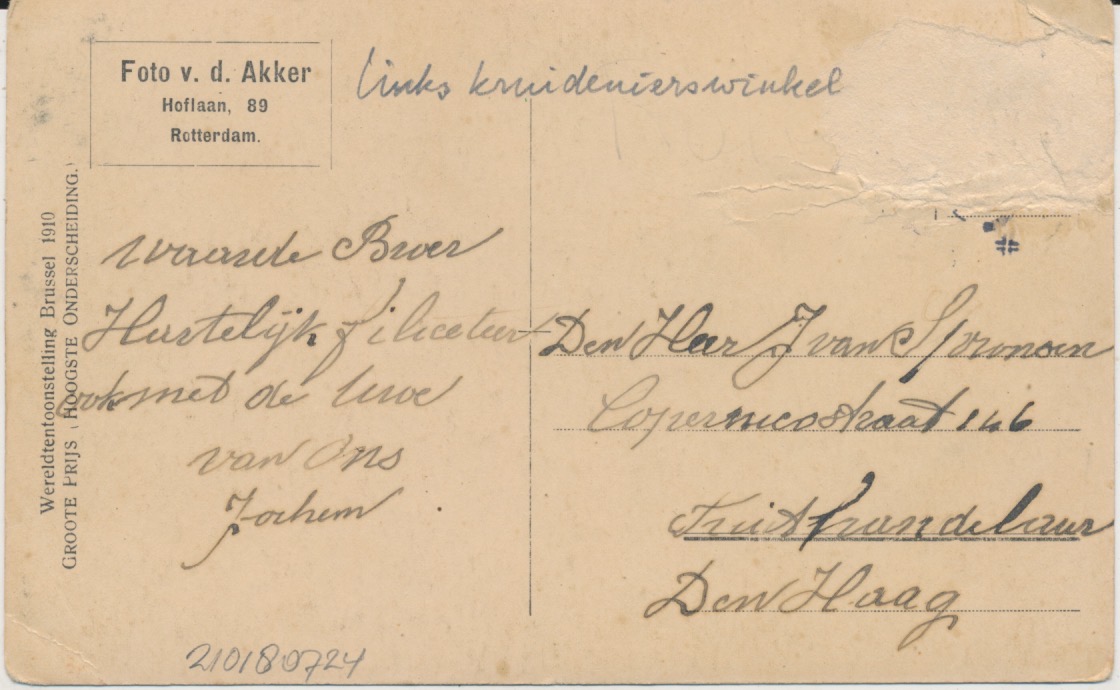 Foto v. d. Akker
Hoflaan, 89
Rotterdam.
Links kruidenierswinkel
Wereldtentoonstelling Brussel 1910
GROOTE PRIJS, HOOGSTE ONDERSCHEIDING.
Waarde Broer
Hartelijk filiceteert
ook met de Uwe
van Ons
Jochem
Den Heer J van Spronsen
Copernicostraat 146
Fruithandelaar
Den Haag
210180724